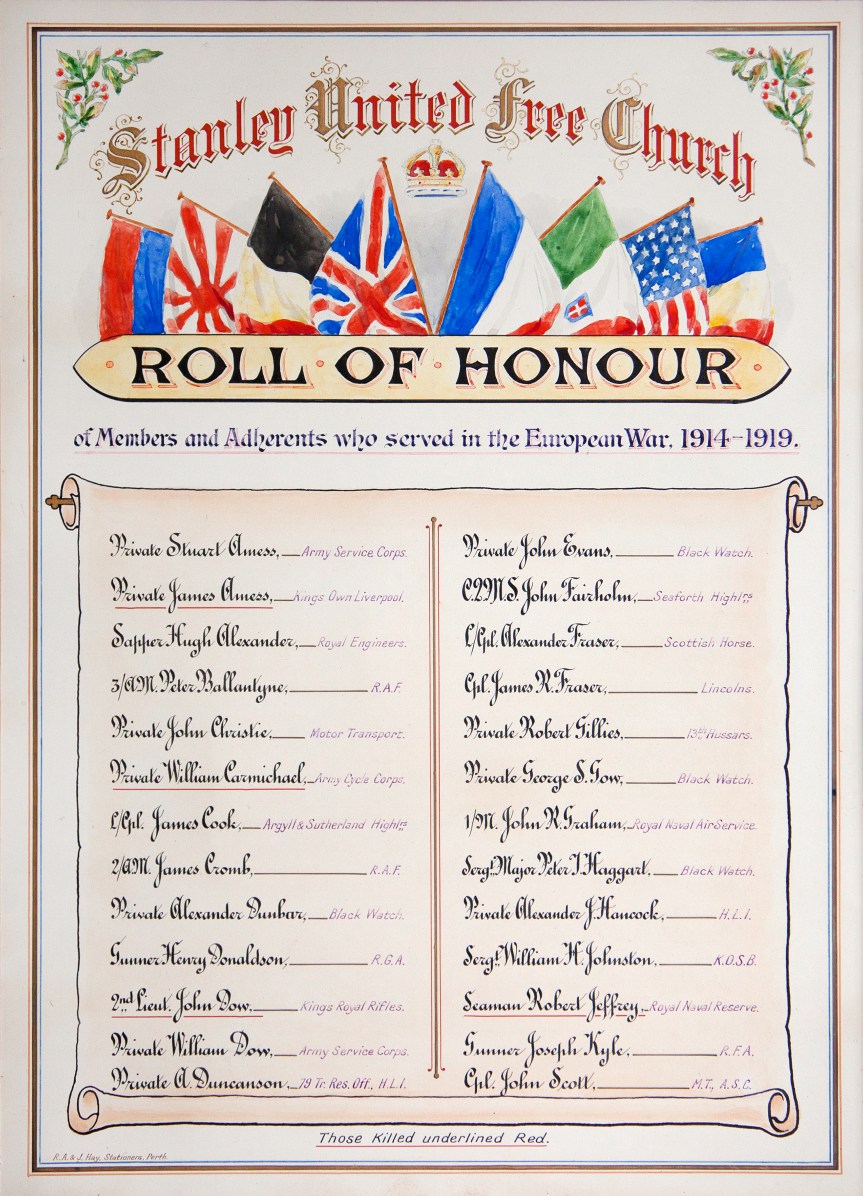 Stanley United Free Church
ROLL · OF · HONOUR
of Members and Adherents who served in the European War. 1914-1919.
Private Stuart Amess, Army Service Corps.
Private James Amess, Kings Own Liverpool.
Sapper Hugh Alexander, Royal Engineers.
3/A.M. Peter Ballantyne, R.A.F.
Private John Christie, Motor Transport.
Private William Carmichael, Army Cycle Corps.
L/Cpl. James Cook, Argyll & Sutherland Highrs
2/A.M. James Cromb, R.A.F.
Private Alexander Dunbar, Black Watch.
Gunner Henry Donaldson, R.G.A.
2nd Lieut. John Dow, Kings Royal Rifles.
Private William Dow, Army Service Corps.
Private A. Duncanson, 79 Tr. Res. Off., H.L.I.
Private John Evans, Black Watch.
C.Q.M.S. John Fairholm, Seaforth Highrs
L/Cpl. Alexander Fraser, Scottish Horse.
Cpl. James R. Fraser, Lincolns.
Private Robert Gillies, 13th Hussars.
Private George S. Gow, Black Watch.
1/M. John R. Graham, Royal Naval Air Service.
Sergt. Major Peter T. Haggart, Black Watch.
Private Alexander J. Hancock, H.L.I.
Sergt. William H. Johnston, K.O.S.B.
Seaman Robert Jeffrey, Royal Naval Reserve.
Gunner Joseph Kyle, R.F.A.
Cpl. John Scott, M.T., A.S.C.
Those Killed underlined Red.
R.A. & J. Hay, Stationers, Perth.